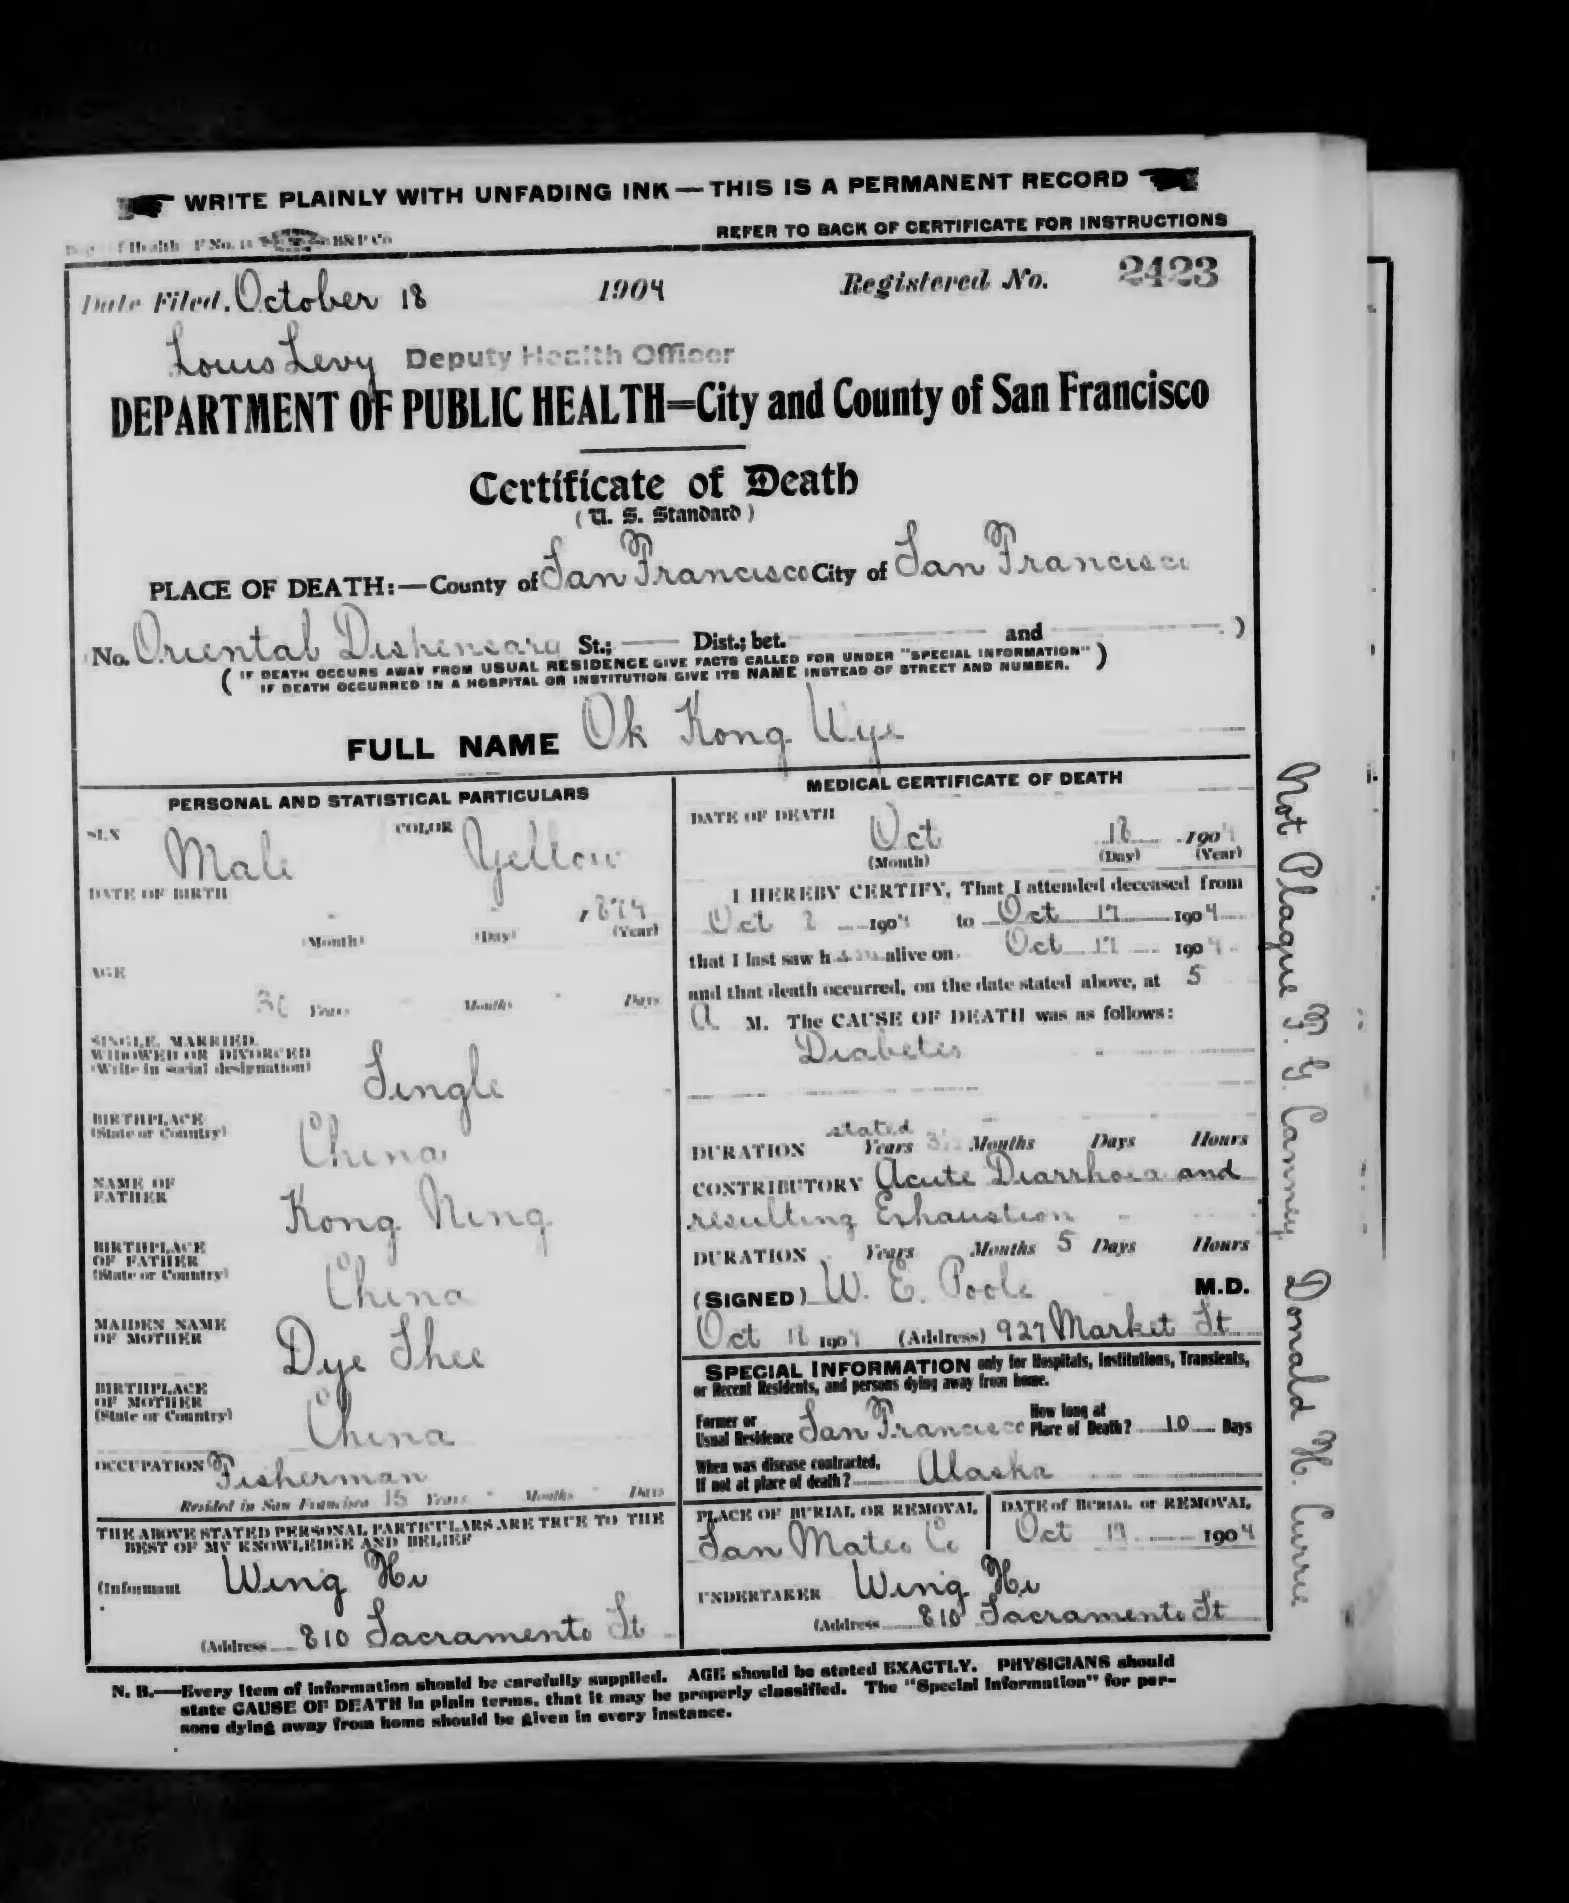 WRITE PLAINLY WITH UNFADING INK — THIS IS A PERMANENT RECORD
of Health B&P Co
REFER TO BACK OF CERTIFICATE FOR INSTRUCTIONS
Date Filed, October 18 1904 Registered No. 2423
Louis Levy Deputy Health Officer
DEPARTMENT OF PUBLIC HEALTH=City and County of San Francisco
Certificate of Death
( U. S. Standard )
PLACE OF DEATH:—County of San Francisco City of San Francisco
No. Oriental Dispensary St.; — Dist.; bet. and )
( IF DEATH OCCURS AWAY FROM USUAL RESIDENCE GIVE FACTS CALLED FOR UNDER "SPECIAL INFORMATION"
IF DEATH OCCURRED IN A HOSPITAL OR INSTITUTION GIVE ITS NAME INSTEAD OF STREET AND NUMBER. )
FULL NAME Ok Kong Wye
PERSONAL AND STATISTICAL PARTICULARS
SEX Male COLOR Yellow
DATE OF BIRTH
- - 1874
(Month) (Day) (Year)
AGE
30 Years - Months - Days
SINGLE, MARRIED,
WIDOWED OR DIVORCED
(Write in social designation) Single
BIRTHPLACE
(State or Country) China
NAME OF
FATHER Kong Ning
BIRTHPLACE
OF FATHER
(State or Country) China
MAIDEN NAME
OF MOTHER Dye Shee
BIRTHPLACE
OF MOTHER
(State or Country) China
OCCUPATION Fisherman
Resided in San Francisco 15 Years - Months - Days
THE ABOVE STATED PERSONAL PARTICULARS ARE TRUE TO THE
BEST OF MY KNOWLEDGE AND BELIEF
(Informant Wing Hi
(Address 810 Sacramento St
MEDICAL CERTIFICATE OF DEATH
DATE OF DEATH
Oct 18 1904
(Month) (Day) (Year)
I HEREBY CERTIFY, That I attended deceased from
Oct 1904 to Oct 17 1904
that I last saw him alive on Oct 17 1904
and that death occurred, on the date stated above, at 5
A M. The CAUSE OF DEATH was as follows:
Diabetes
stated
DURATION Years Months Days Hours
CONTRIBUTORY Acute Diarrhoea and
resulting Exhaustion
DURATION Years Months 5 Days Hours
(SIGNED) W. E. Poole M.D.
Oct 18 1904 (Address) 927 Market St
SPECIAL INFORMATION only for Hospitals, Institutions, Transients,
or Recent Residents, and persons dying away from home.
Former or
Usual Residence San Francisco How long at
Place of Death? 10 Days
When was disease contracted,
If not at place of death? Alaska
PLACE OF BURIAL OR REMOVAL
San Mateo Co
DATE of BURIAL or REMOVAL
Oct 19 1904
UNDERTAKER Wing Hi
(Address 810 Sacramento St
N. B.—Every item of information should be carefully supplied. AGE should be stated EXACTLY. PHYSICIANS should
state CAUSE OF DEATH in plain terms, that it may be properly classified. The "Special Information" for per-
sons dying away from home should be given in every instance.
Not Plague F. G. Canney Donald H. Currie